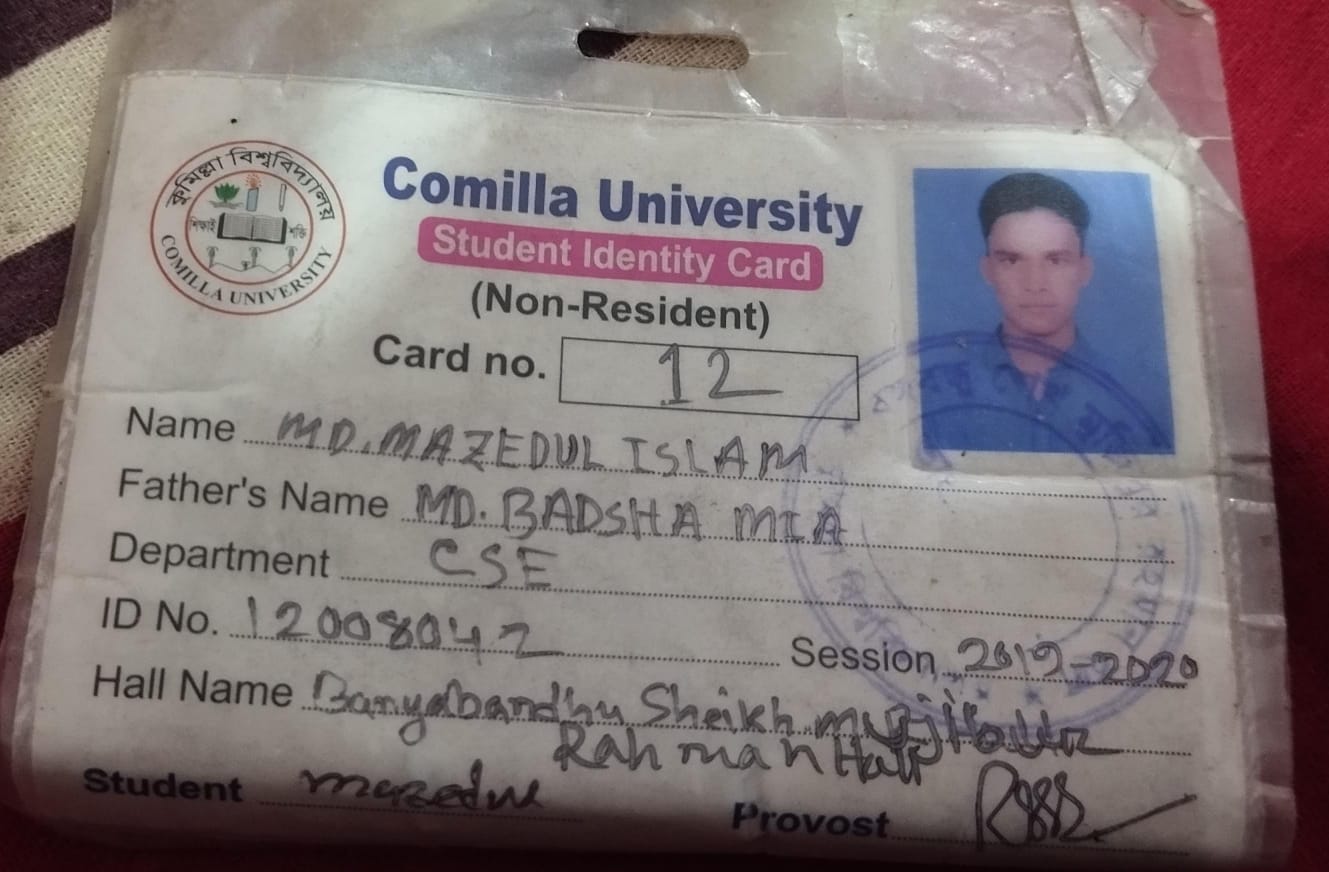 কুমিল্লা বিশ্ববিদ্যালয়
শিক্ষাই শক্তি
COMILLA UNIVERSITY
Comilla University
Student Identity Card
(Non-Resident)
Card no. 12
Name MD. MAZEDUL ISLAM
Father's Name MD. BADSHA MIA
Department CSE
ID No. 12008042 Session 2019-2020
Hall Name Bangabandhu Sheikh Mujibur
Rahman Hall
Student Mazedul
Provost